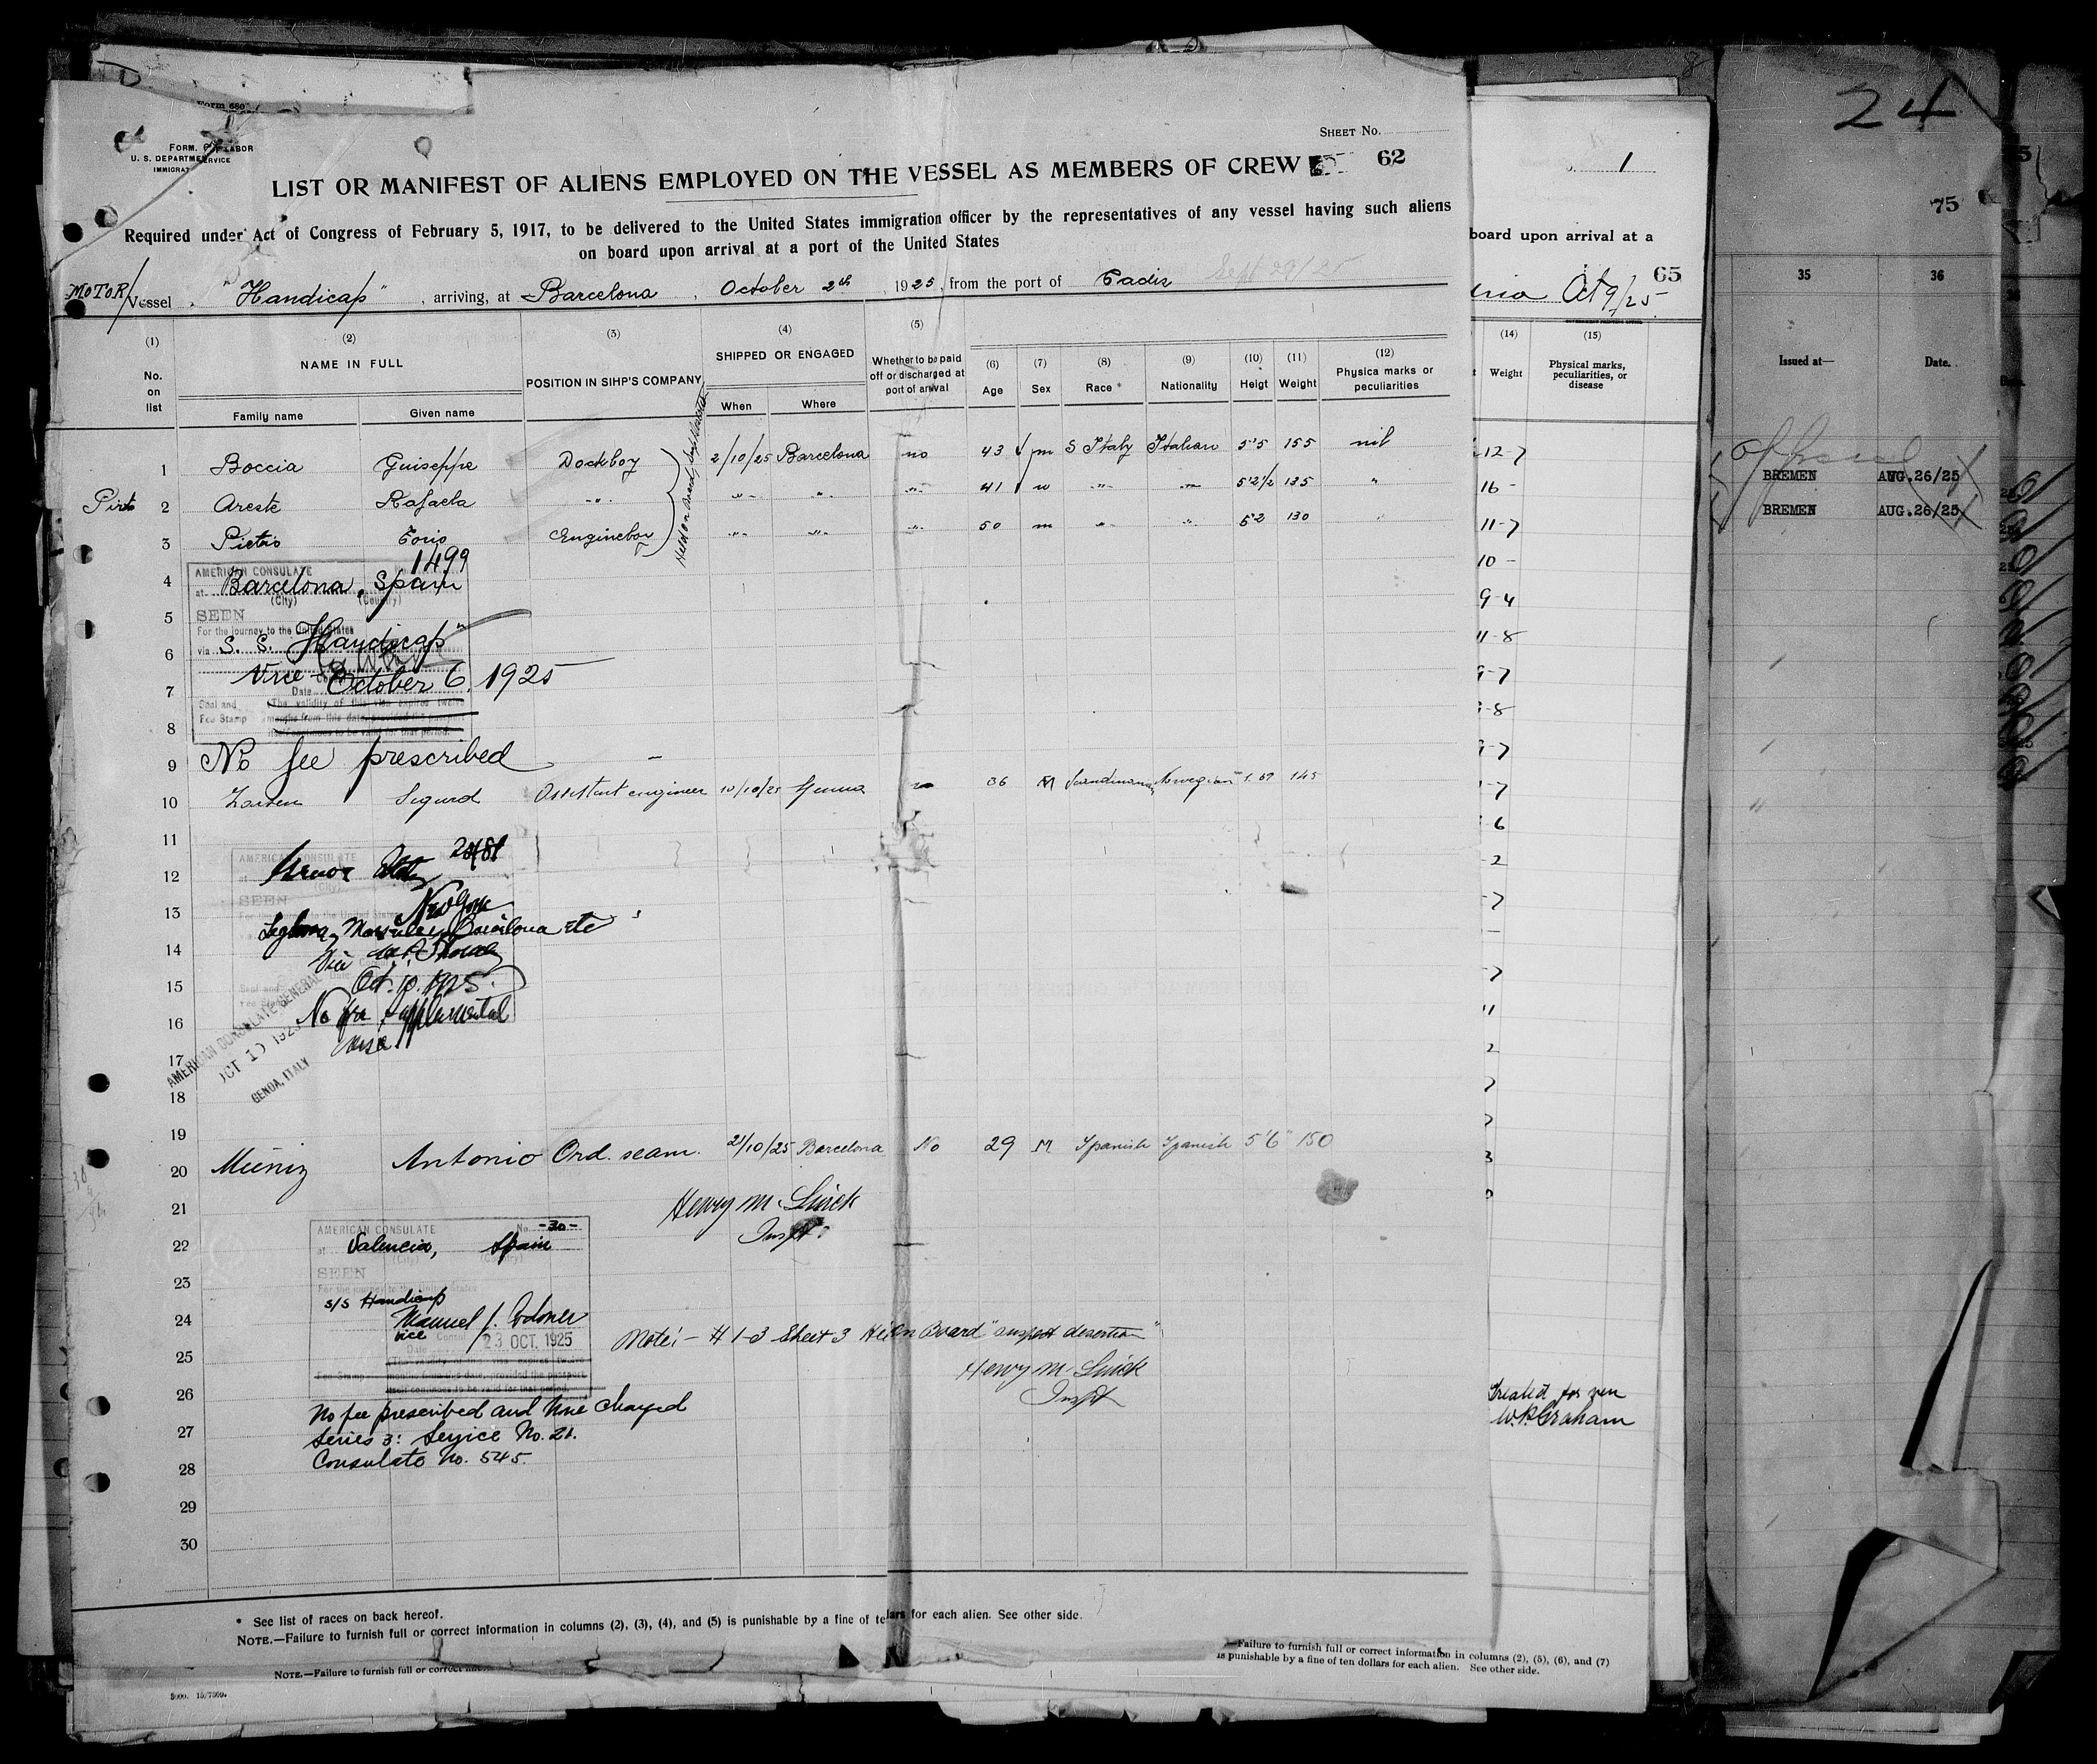 Form 680
FORM. OF LABOR
U. S. DEPARTME SERVICE
IMMIGRAT
SHEET No.
LIST OR MANIFEST OF ALIENS EMPLOYED ON THE VESSEL AS MEMBERS OF CREW 62
Required under Act of Congress of February 5, 1917, to be delivered to the United States immigration officer by the representatives of any vessel having such aliens
on board upon arrival at a port of the United States
MOTOR/Vessel "Handicap", arriving, at Barcelona, October 2th 1925, from the port of Cadiz Sept 29/25
(1) (2) (3) (4) (5) (6) (7) (8) (9) (10) (11) (12)
No. on list
NAME IN FULL
Family name Given name
POSITION IN SIHP'S COMPANY
SHIPPED OR ENGAGED
When Where
Whether to be paid off or discharged at port of arrival
Age Sex Race * Nationality Heigt Weight Physica marks or peculiarities
1 Boccia Guiseppe Deckboy 2/10/25 Barcelona no 43 m S Italy Italian 5'5 155 nil
2 Areste Rafaela -"- -"- -"- -"- 41 -"- -"- 5'2 1/2 135 "
3 Pietrio Engineboy -"- -"- -"- 50 m -"- -"- 5'2 130 "
4
5
6
7
8
9
AMERICAN CONSULATE 1499
at Barcelona, Spain
(City) (Country)
SEEN
For the journey to the United States
via S. S. "Handicap"
Vice
Date October 6, 1925
Seal and Fee Stamp
The validity of this visa expires twelve
months from this date, provided the passport
itself continues to be valid for that period.
No fee prescribed
10 Larsen Sigurd Assistant engineer 10/10/25 Genua no 36 M Scandinavian Norwegian 1.69 145
11
12
13
14
15
16
17
18
19
AMERICAN CONSULATE
(City)
SEEN
New York
Marseilles, Barcelona etc
Oct. 10. 1925.
No fee supplemental
visa
AMERICAN CONSULATE GENERAL
OCT 10 1925
GENOA, ITALY
20 Muniz Antonio Ord. seam. 21/10/25 Barcelona No 29 M Spanish Spanish 5'6" 150
Henry M. Quick
Inspt.
21
22
23
24
25
26
27
28
29
30
AMERICAN CONSULATE No. -30-
at Valencia, Spain
(City) (Country)
SEEN
For the journey to the United States
S/S Handicap
Manuel J. Codoner
Vice Consul
Date 23 OCT. 1925
The validity of this visa expires twelve
Fee Stamp months from this date, provided the passport
itself continues to be valid for that period.
Note:- # 1-3 Sheet 3 Held on Board "suspect desertion"
Henry M. Quick
Inspt
No fee prescribed and None charged
Series 3: Service No. 21.
Consulate No. 545.
* See list of races on back hereof.
NOTE.—Failure to furnish full or correct information in columns (2), (3), (4), and (5) is punishable by a fine of te lars for each alien. See other side.
NOTE.—Failure to furnish full or correct
—Failure to furnish full or correct information in columns (2), (5), (6), and (7)
is punishable by a fine of ten dollars for each alien. See other side.
1
board upon arrival at a
65
Oct 9/25
(14) (15)
Weight Physical marks, peculiarities, or disease
12-7
16 -
11-7
10 -
9-4
11-8
Treated for ven
W.P. Graham
24
75
35 36
Issued at— Date.
BREMEN AUG.26/25
BREMEN AUG.26/25